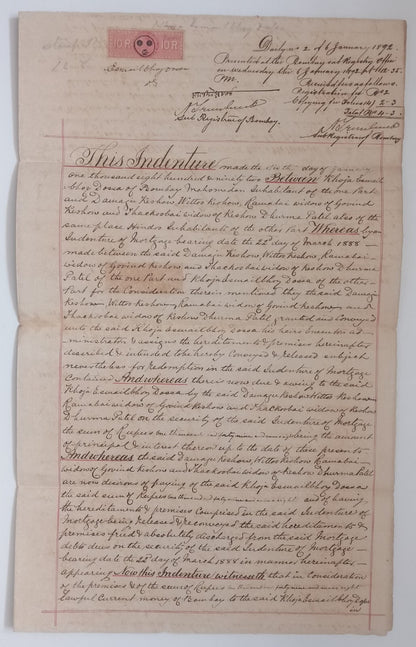 10R 10R
Daily no 2 of 6 January 1892
Presented at the Bombay sub Registry Office
on Wednesday the January 1892
Received fees as follows
Registration fee
Copying fee folios 2 - 3
Total Rs 4 - 3
Sub Registrar of Bombay
Sub Registrar of Bombay
This Indenture made the day of January
one thousand eight hundred and ninety two Between Khoja Esmail
bhoy Dossa of Bombay Mahomedan Inhabitant of the one Part
and Damajee Keshow Wittoo Keshow, Ramabai widow of Govind
Keshow and Thackorbai widow of Keshow Dhurma Patel also of the
same place Hindoo Inhabitants of the other Part Whereas by an
Indenture of Mortgage bearing date the 22d day of March 1888 —
made between the said Damajee Keshow, Wittoo Keshow, Ramabai —
widow of Govind Keshow and Thackorbai widow of Keshow Dhurma
Patel of the one Part and Khoja Esmailbhoy Dossa of the other —
Part for the Consideration therein mentioned they the said Damajee
Keshow Wittoo Keshow Ramabai widow of Govind Keshow and
Thackorbai widow of Keshow Dhurma Patel granted and Conveyed
unto the said Khoja Esmailbhoy Dossa his heirs executors ad
ministrators & assigns the hereditaments and premises hereinafter
described & intended to be hereby Conveyed & Released subject
nevertheless for redemption in the said Indenture of Mortgage
Contained And whereas there is now due & owing to the said
Khoja Esmailbhoy Dossa by the said Damajee Keshow Wittoo Keshow
Ramabai widow of Govind Keshow and Thackorbai widow of Keshow
Dhurma Patel on the security of the said Indenture of Mortgage
the sum of Rupees being the amount
of principal & interest thereon up to the date of these presents
And whereas the said Damajee Keshow Wittoo Keshow Ramabai
widow of Govind Keshow and Thackorbai widow of Keshow Dhurma Patel
are now desirous of paying of the said Khoja Esmailbhoy Dossa
the said sum of Rupees and of having
the hereditaments & premises Comprised in the said Indenture of
Mortgage being released & reconveyed the said hereditaments &
premises freed & absolutely discharged from the said Mortgage
debt dues on the security of the said Indenture of Mortgage —
bearing date the 22d day of March 1888 in manner hereinafter
appearing Now this Indenture witnesseth that in consideration
of the premises & of the sum of Rupees
lawful Current money of Bombay to the said Khoja Esmailbhoy Dossa
in